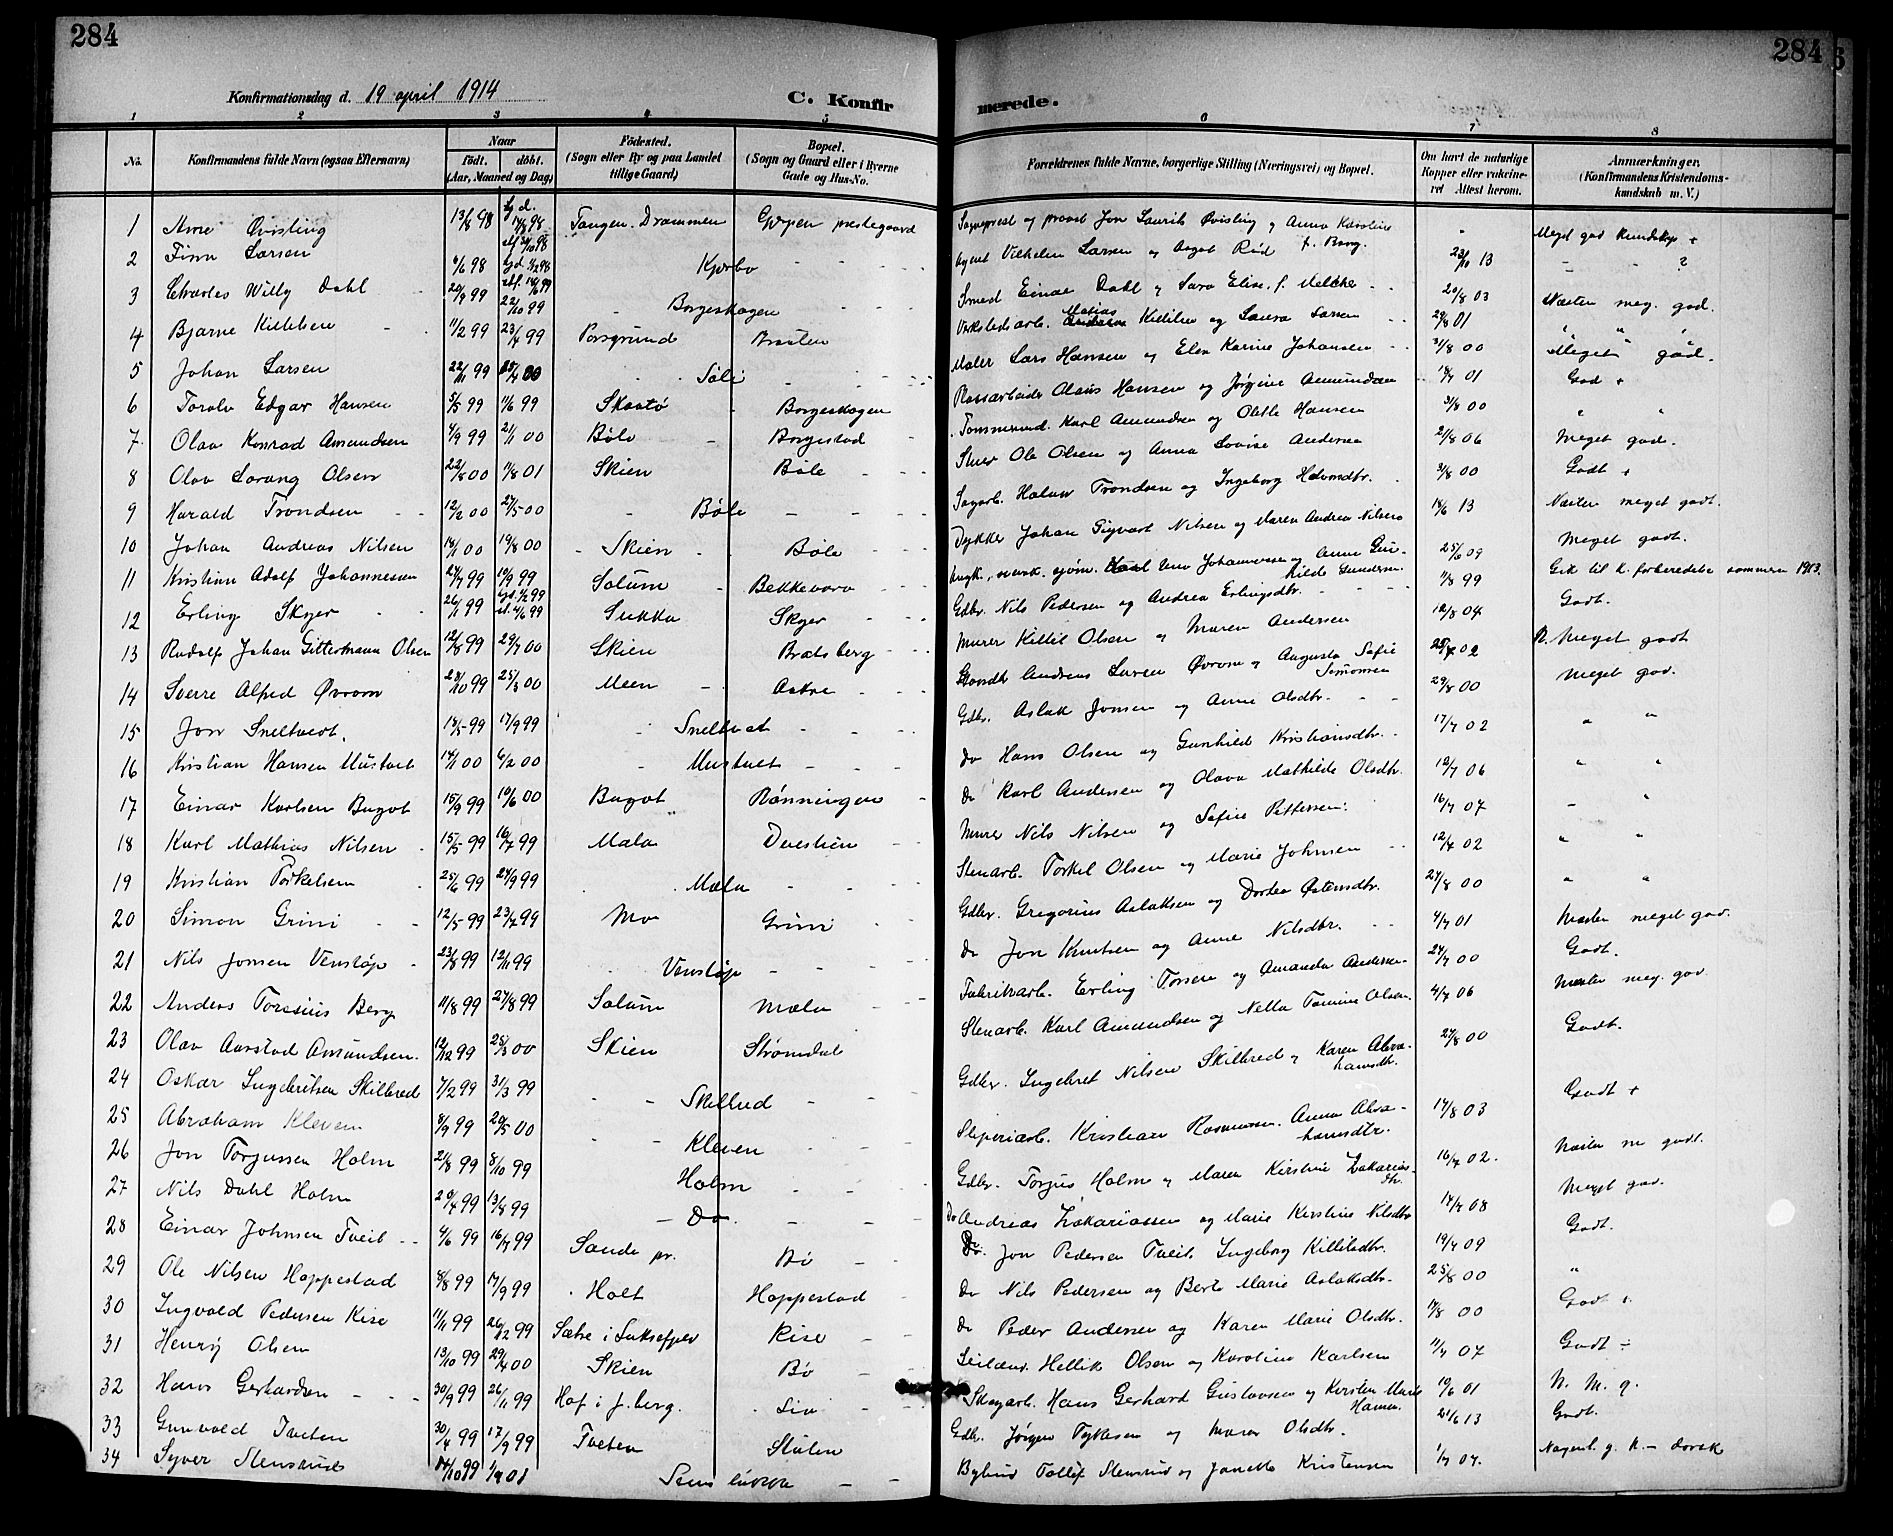 284
284
Konfirmationsdag d. 19 april 1914
C. Konfir
merede.
1 2 3 4 5 6 7 8
No.
Konfirmandens fulde Navn (ogsaa Efternavn)
Naar
født. døbt.
(Aar, Maaned og Dag)
Födested.
(Sogn eller By og paa Landet
tillige Gaard)
Bopæl.
(Sogn og Gaard eller i Byerne
Gade og Hus-No.
Forældrenes fulde Navne, borgerlige Stilling (Næringsvei) og Bopæl.
Om havt de naturlige
Kopper eller vakcine-
ret Attest herom.
Anmærkninger.
(Konfirmandens Kristendoms-
kundskab m. V.)
1 Arne Qvisling 13/8 98 Tangen, Drammen Gjerpen prestegaard Sogneprest og provst Jon Laurits Qvisling og Anna Karoline f. Bang. Meget god kundskap +
2 Finn Larsen 6/6 98 Kjørbo Agent Vilhelm Larsen og Aagot Rud 23/10 13
3 Charles Willy Dahl 20/9 99 22/10 99 Borgeskogen Smed Einar Dahl og Sara Elise f. Melcher 20/8 03 Næsten meg. god.
4 Bjarne Killilsen 11/2 99 23/4 99 Porsgrund Braaten Verkstedsarb. Matias Killilsen og Laura Larsen 29/8 01 " " "
5 Johan Larsen 22/11 99 Søli Maler Lars Hansen og Elen Karine Johansen 31/8 00 Meget god.
6 Torolv Edgar Hansen 5/5 99 11/6 99 Skaatø Borgeskogen Hansen og Jørgine Amundsen 18/7 01 God +
7 Olav Konrad Amundsen 4/9 99 21/1 00 Bøle Borgestad Tømmermand Karl Amundsen og Oletta Hansen 3/8 00 " "
8 Olav Lorang Olsen 22/8 00 11/8 01 Skien Bøle Stuer Ole Olsen og Anna Lovise Andersen 21/8 06 Meget god.
9 Harald Trondsen 12/2 00 27/5 00 Bøle Sagarb. Halvor Trondsen og Ingeborg Halvorsdtr. 3/8 00 Godt +
10 Johan Andreas Nilsen 18/1 00 19/8 00 Skien Bøle Dykker Johan Sigvart Nilsen og Maren Andrea Nilsen 14/6 13 Næsten meget godt.
11 Kristian Adolf Johannessen 24/7 99 10/9 99 Solum Bekkevora Johannessen og Anne Gunhilde Gundersen 25/6 09 Meget godt.
12 Erling Skyer 26/1 99 Lukka Skyer Gdbr. Nils Pedersen og Andrea Erlingsdtr. 11/8 99 Gik til k. forberedelse sommeren 1913. Godt.
13 Rudolf Johan Gittermann Olsen 12/8 99 29/7 00 Skien Bratsberg Murer Killil Olsen og Maren Andersen 12/8 04 N. Meget godt
14 Sverre Alfred Øvrom 28/10 99 25/3 00 Meen Aakre Andreas Øvrom og Augusta Sofie Simonsen 02 Meget god.
15 Jon Sneltvedt. 18/5 99 17/9 99 Sneltvedt Gdbr. Aslak Jonsen og Anne Olsdtr. 29/8 00 " "
16 Kristian Hansen Mustvet 14/1 00 6/2 00 Mustvet Do Hans Olsen og Gunhild Kristiansdtr. 17/7 02 " "
17 Einar Karlsen Bugot 15/9 99 10/6 00 Bugot Rønningen Do Karl Andersen og Olava Mathilde Olsdtr. 12/7 06 "
18 Karl Mathias Nilsen 15/5 99 16/7 99 Mæla Dvestien Murer Nils Nilsen og Sofie Pettersen 16/7 07 " "
19 Kristian Torkelsen 25/6 99 24/9 99 Mæla Stenarb. Torkel Olsen og Marie Johnsen 12/7 02 " "
20 Simon Grini 12/5 99 23/7 99 Mo Grini Gdbr. Gregorius Aslaksen og Dortea Østensdtr. 27/8 00 Næsten meget god.
21 Nils Jonsen Venstøp 23/8 99 12/11 99 Venstøp Do Jon Knutsen og Anne Nilsdtr. 4/7 01 Godt.
22 Anders Toresius Berg 11/8 99 27/8 99 Solum Mæla Fabrikarb. Erling Torsen og Amanda Andersen 24/7 00 Næsten meg. god.
23 Olav Aarstad Amundsen. 12/12 99 25/3 00 Skien Strømdal Stenarb. Karl Amundsen og Nella Tomine Olsen. 4/7 06 Godt.
24 Oskar Ingebretsen Skilbred 7/2 99 31/3 99 Skilbred Gdbr. Ingebret Nilsen Skilbred og Karen Abrahamsdtr. 27/8 00 Godt +
25 Abraham Kleven 8/9 99 20/5 00 Kleven Sliperiarb. Kristian Rasmussen. Anna Abrahamsdtr. 14/8 03 Næsten m godt.
26 Jon Torjussen Holm 21/8 99 8/10 99 Holm Gdbr. Torjus Holm og Maren Kirstine Zakariasdtr. 16/7 02. Meget god.
27 Nils Dahl Holm 29/4 99 13/8 99 Do Do Andreas Zakariassen og Marie Kirstine Nilsdtr 14/7 08 Godt.
28 Einar Johnsen Tveit 4/6 99 16/7 99 Sande pr. Bø Do. Jon Pedersen Tveit. Ingeborg Killilsdtr. 19/7 09 "
29 Ole Nilsen Hoppestad 8/8 99 17/9 99 Holt Hoppestad Do Nils Pedersen og Berte Marie Aslaksdtr. 25/8 00 Godt +
30 Ingvald Pedersen Kise 11/11 99 26/12 99 Sætre i Luksefjell Kise Do Peder Andersen og Karen Marie Olsdtr. 17/8 00 Godt ÷
31 Henry Olsen 13/10 99 29/4 00 Skien Bø Hellik Olsen og Karoline Karlsen 11/7 07 N. M. g.
32 Hans Gerhardsen 30/9 99 26/11 99 Hof i J.berg. Lia Skogarb. Hans Gerhard Gustavsen og Kirsten Marie Hansen. 19/6 01 Godt.
33 Gunvald Tveten 30/4 99 17/9 99 Tveten Stulen Gdbr. Jørgen Tykesen og Maren Olsdtr. 21/6 13
34 Syver Stensrud 14/10 99 Bjelund Tollef Stensrud og Janette Kristensen 1/7 07. Nogenl. g. k. – dorsk